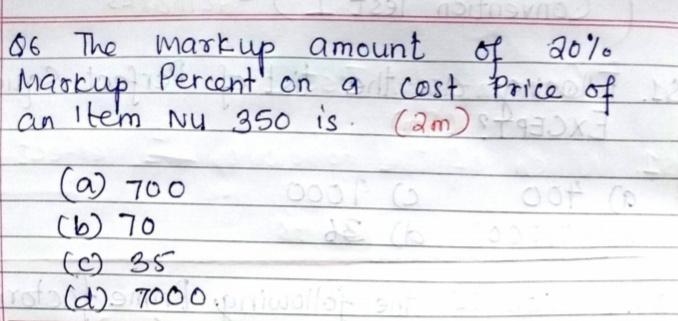 Q6 The markup amount of 20%
Markup Percent on a cost Price of
an Item Nu 350 is. (2m)
(a) 700
(b) 70
(c) 35
(d) 7000.